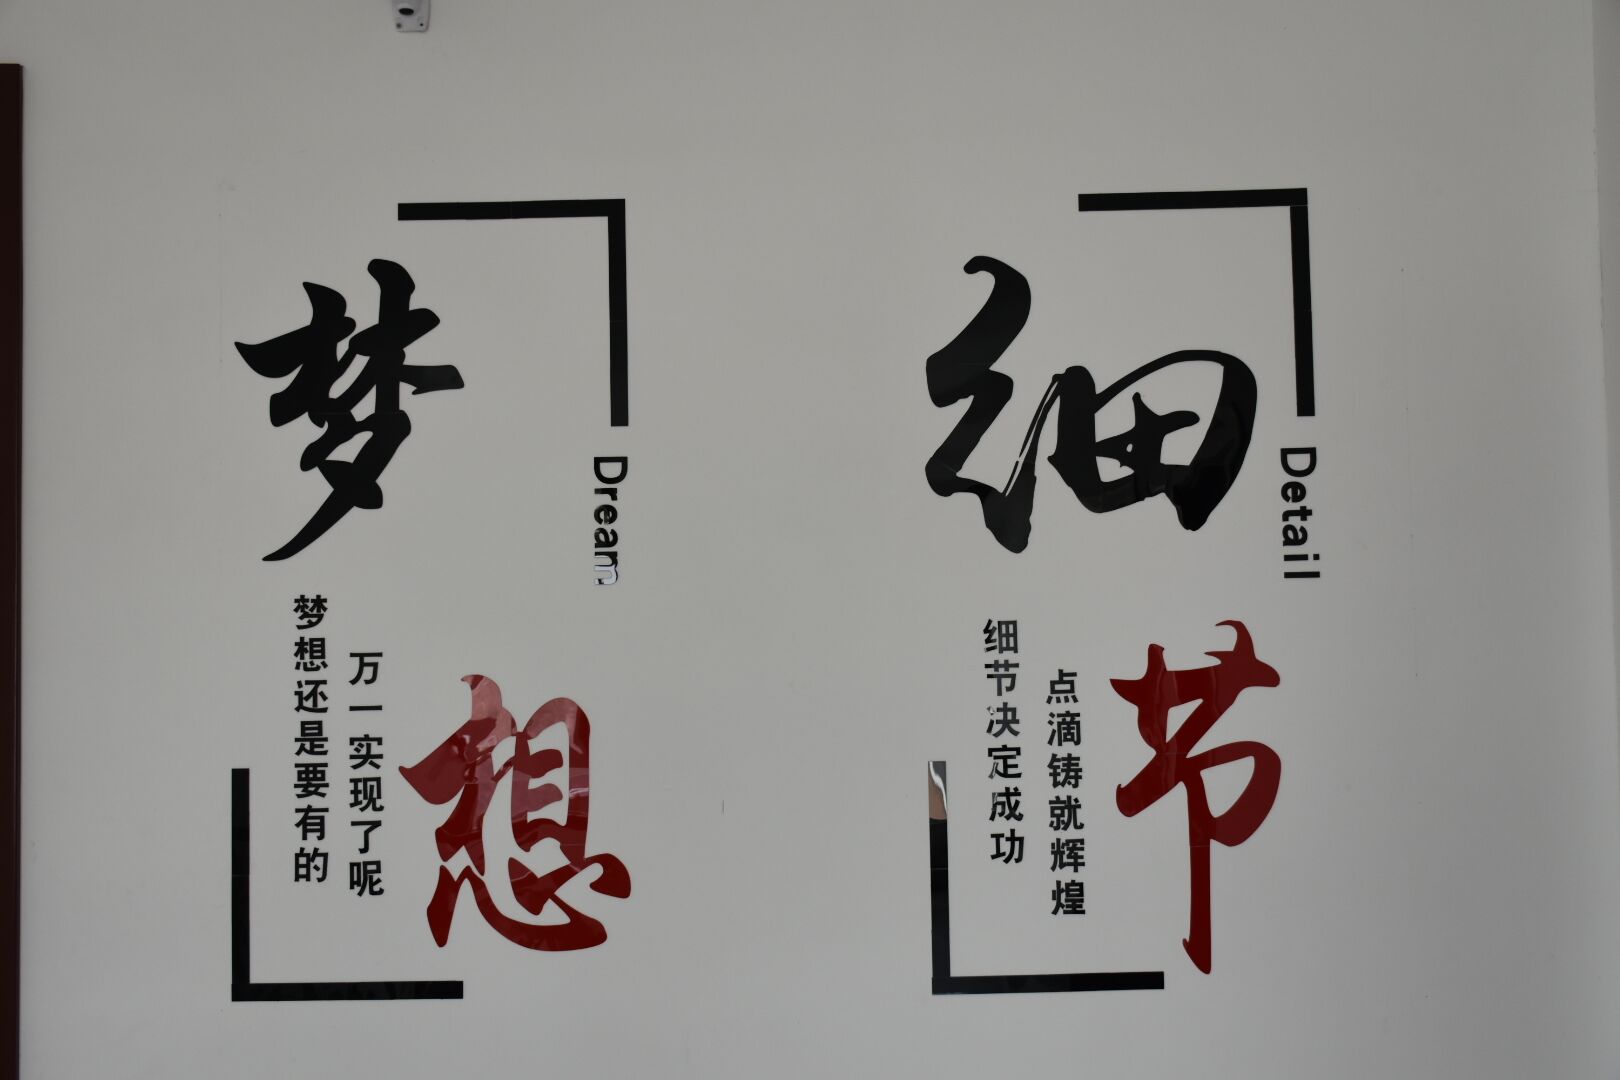 梦想
Dream
梦想还是要有的
万一实现了呢
细节
Detail
细节决定成功
点滴铸就辉煌